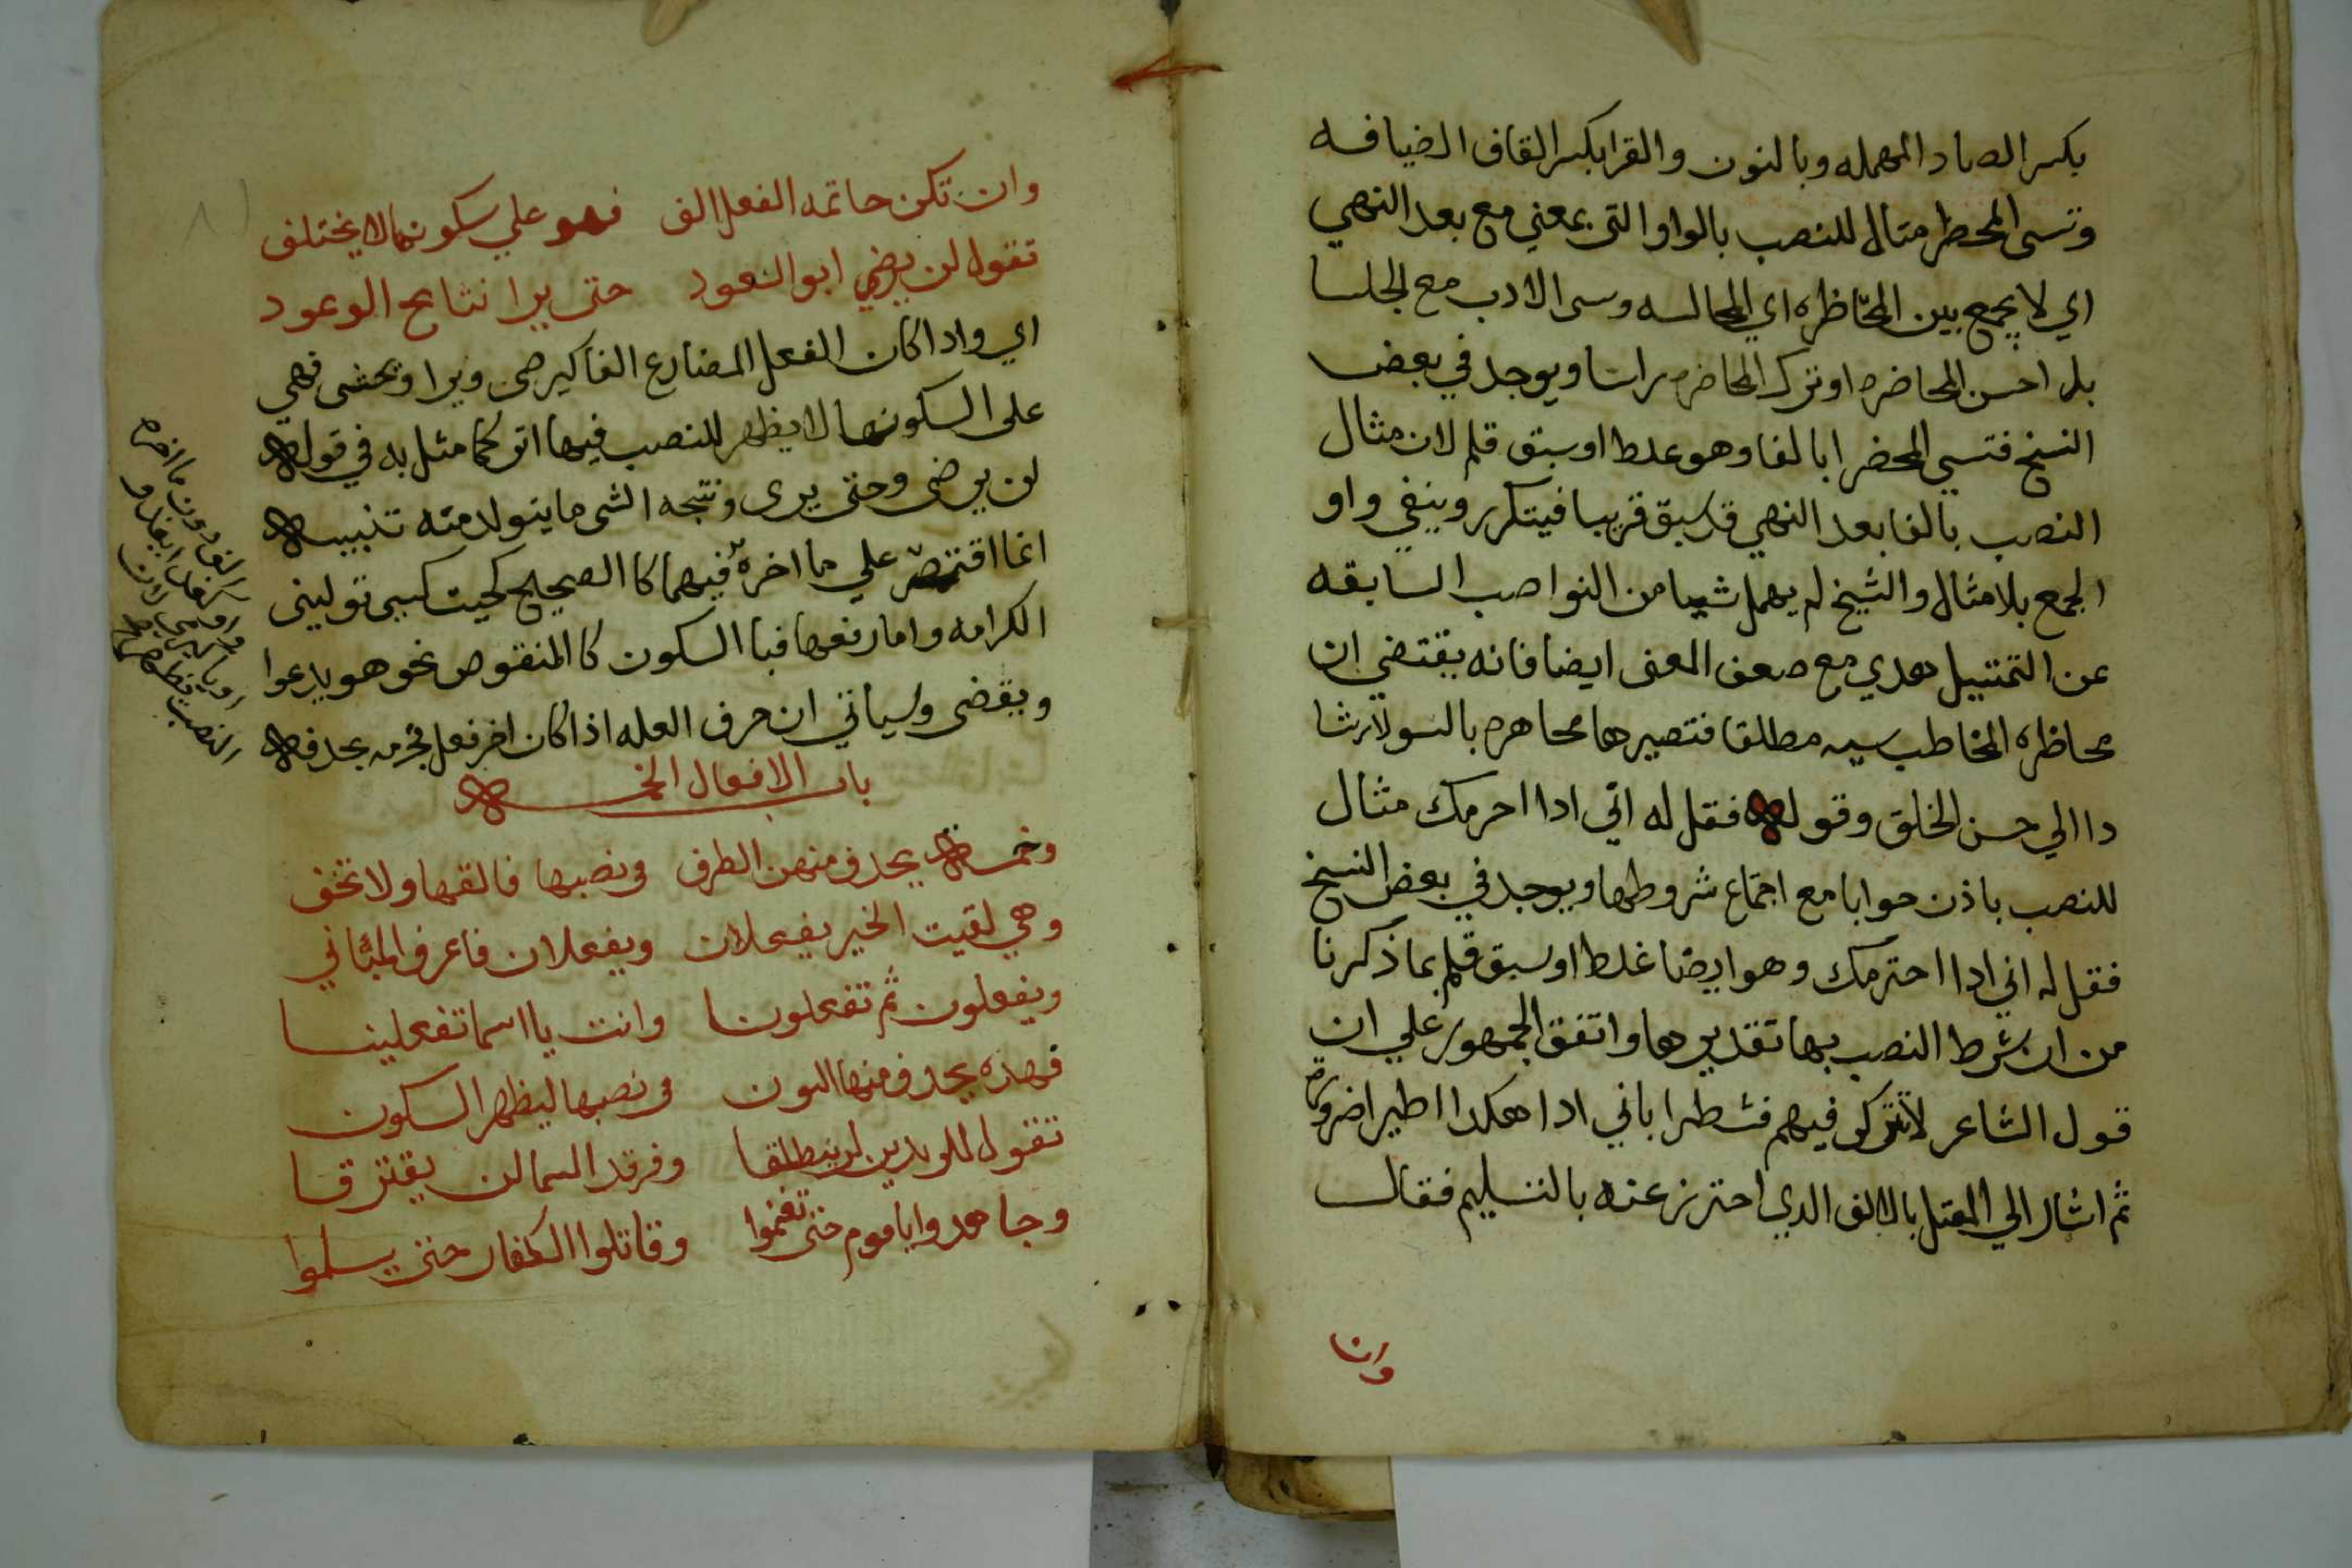 بكسر الصاد المهمله وبالنون والقرا بكسر القاف الضيافه
وتسى المحظر مثال للنصب بالواو التى بمعني مع بعد النهي
اي لا يجمع بين المحاظره اي المجالسه وسى الادب مع الجلسا
بل احسن المحاضره او تترك المحاضره راسا ويوجد في بعض
النسخ فتسي المحضرا بالفا وهو علط او سبق قلم لان مثال
النصب بالفا بعد النهي قد سبق قريبا فيتكرر وينفي واو
الجمع بلا مثال والشيخ لم يهمل شيا من النواصب السابقه
عن التمثيل هدي مع صعف المعنى ايضا فانه يقتضي ان
محاظره المخاطب سيه مطلقا فتصيرها محاهره بالسو لارشا
دا الي حسن الخلق وقوله فقل له اني ادا احرمك مثال
للنصب باذن حوابا مع اجتماع شروطها ويوجد في بعض النسخ
فقل له اني ادا احترمك وهو ايضا غلط او سبق قلم بما ذكرنا
من ان شرط النصب بها تقديرها واتفق الجمهور علي ان
قول الشاعر لا تتركى فيهم شطرا باني ادا هكدا اطير اضروره
ثم اشار الي المعتل بالالف الدي احترز عنه بالتسليم فقال
وان
وان تكن حاتمه الفعل الف فهو علي سكونها لا يختلف
تقول لن يرضي ابو السعود حتى يرا نتايج الوعود
اي واداكان الفعل المضارع الفا كيرضى ويرا وتخشى فهي
على السكونها لا يظهر للنصب فيها اثر كما مثل به في قوله
لن يرضى وحتى يرى ونتيجه الشى ما يتولد منه تنبيه
انما اقتصر علي ما اخره فيهما كا الصحيح كجيت كي توليني
الكرامه واما رفعها فبا السكون كا المنقوص نحو هو يدعوا
ويقضى وسياتي ان حرف العله اذا كان اخر فعل فجزمه بحدفه
باب الافعال الخمسه
وخمسة يحدف منهن الطرف فى نصبها فالقها ولا تخف
وهي لقيت الخير يفعلان ويفعلان فاعرف المباني
ويفعلون ثم تفعلونا وانت يا اسما تفعلينا
فهده يحدف منها النون فى نصبها ليظهر السكون
تقول للزيدين لن ينطلقا وفرقد السما لن يفترقا
وجاهدوا يا قوم حتى تغنموا وقاتلوا الكفار حتى يسلموا